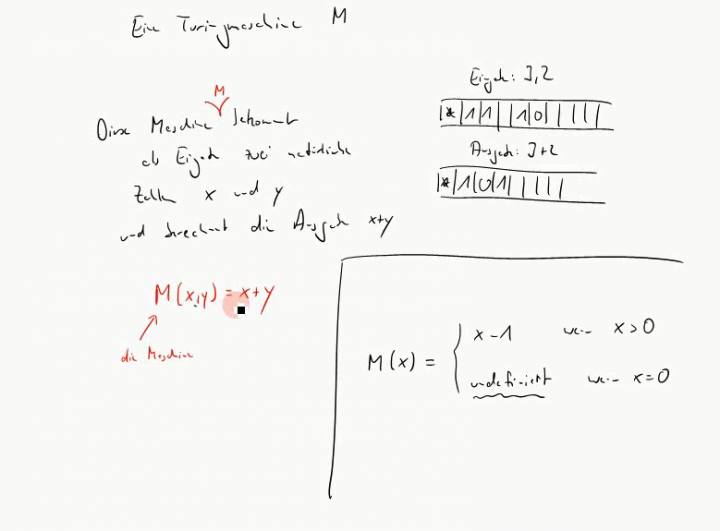 Eine Turingmaschine M
M
Diese Maschine bekommt
als Eingabe zwei natürliche
Zahlen x und y
und berechnet die Ausgabe x+y
M(x,y) = x+y
die Maschine
Eingabe: 3,2
*|1|1| |1|0| | | | |
Ausgabe: 3+2
*|1|0|1| | | | |
M(x) =
x-1 wenn x>0
undefiniert wenn x=0